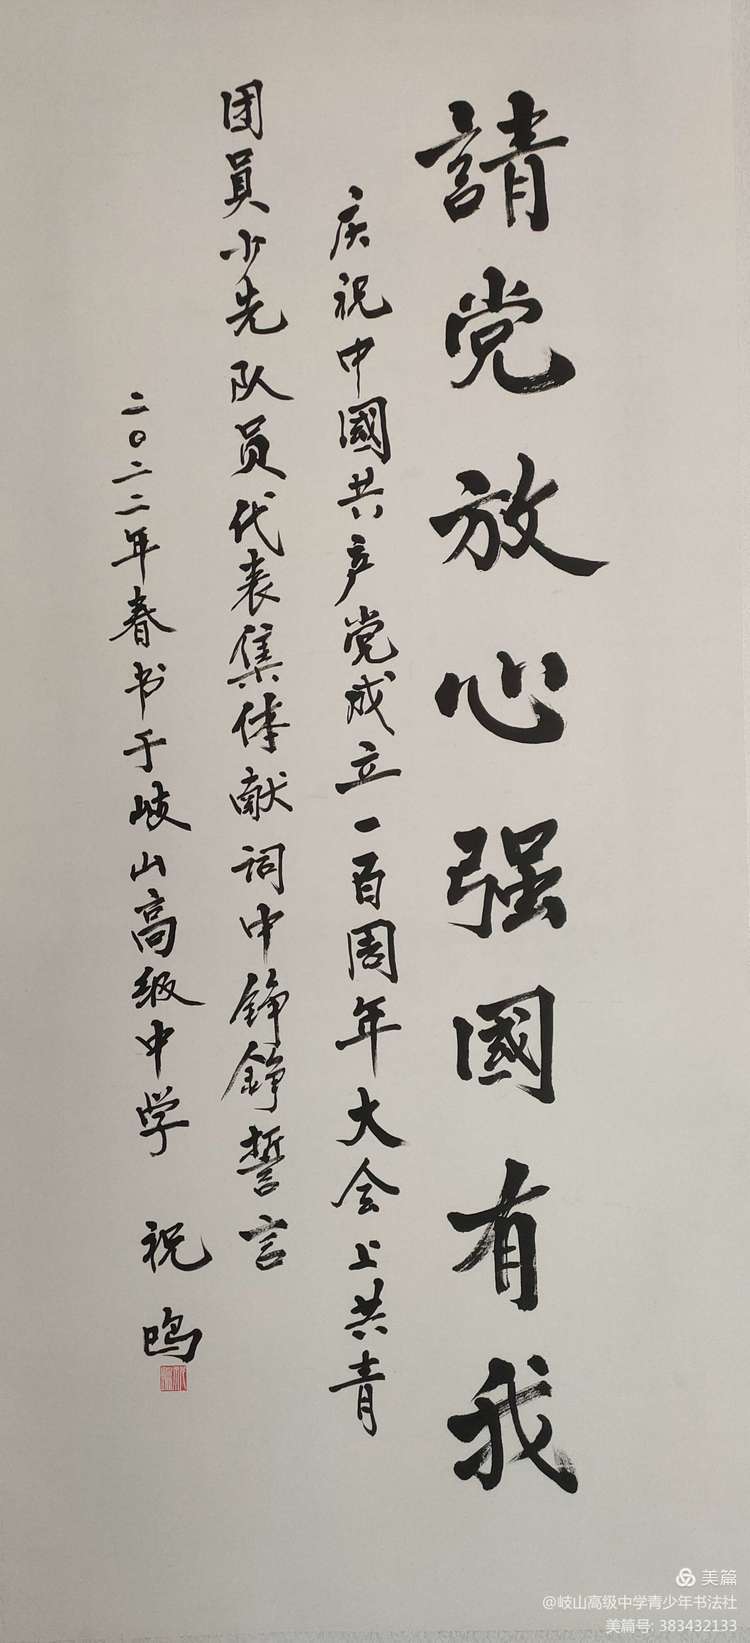 請党放心强國有我
庆祝中國共产党成立一百周年大会上共青
团員少先队员代表集体献词中铮铮誓言
二〇二二年春书于岐山高级中学 祝鸣
美篇
@岐山高级中学青少年书法社
美篇号: 383432133